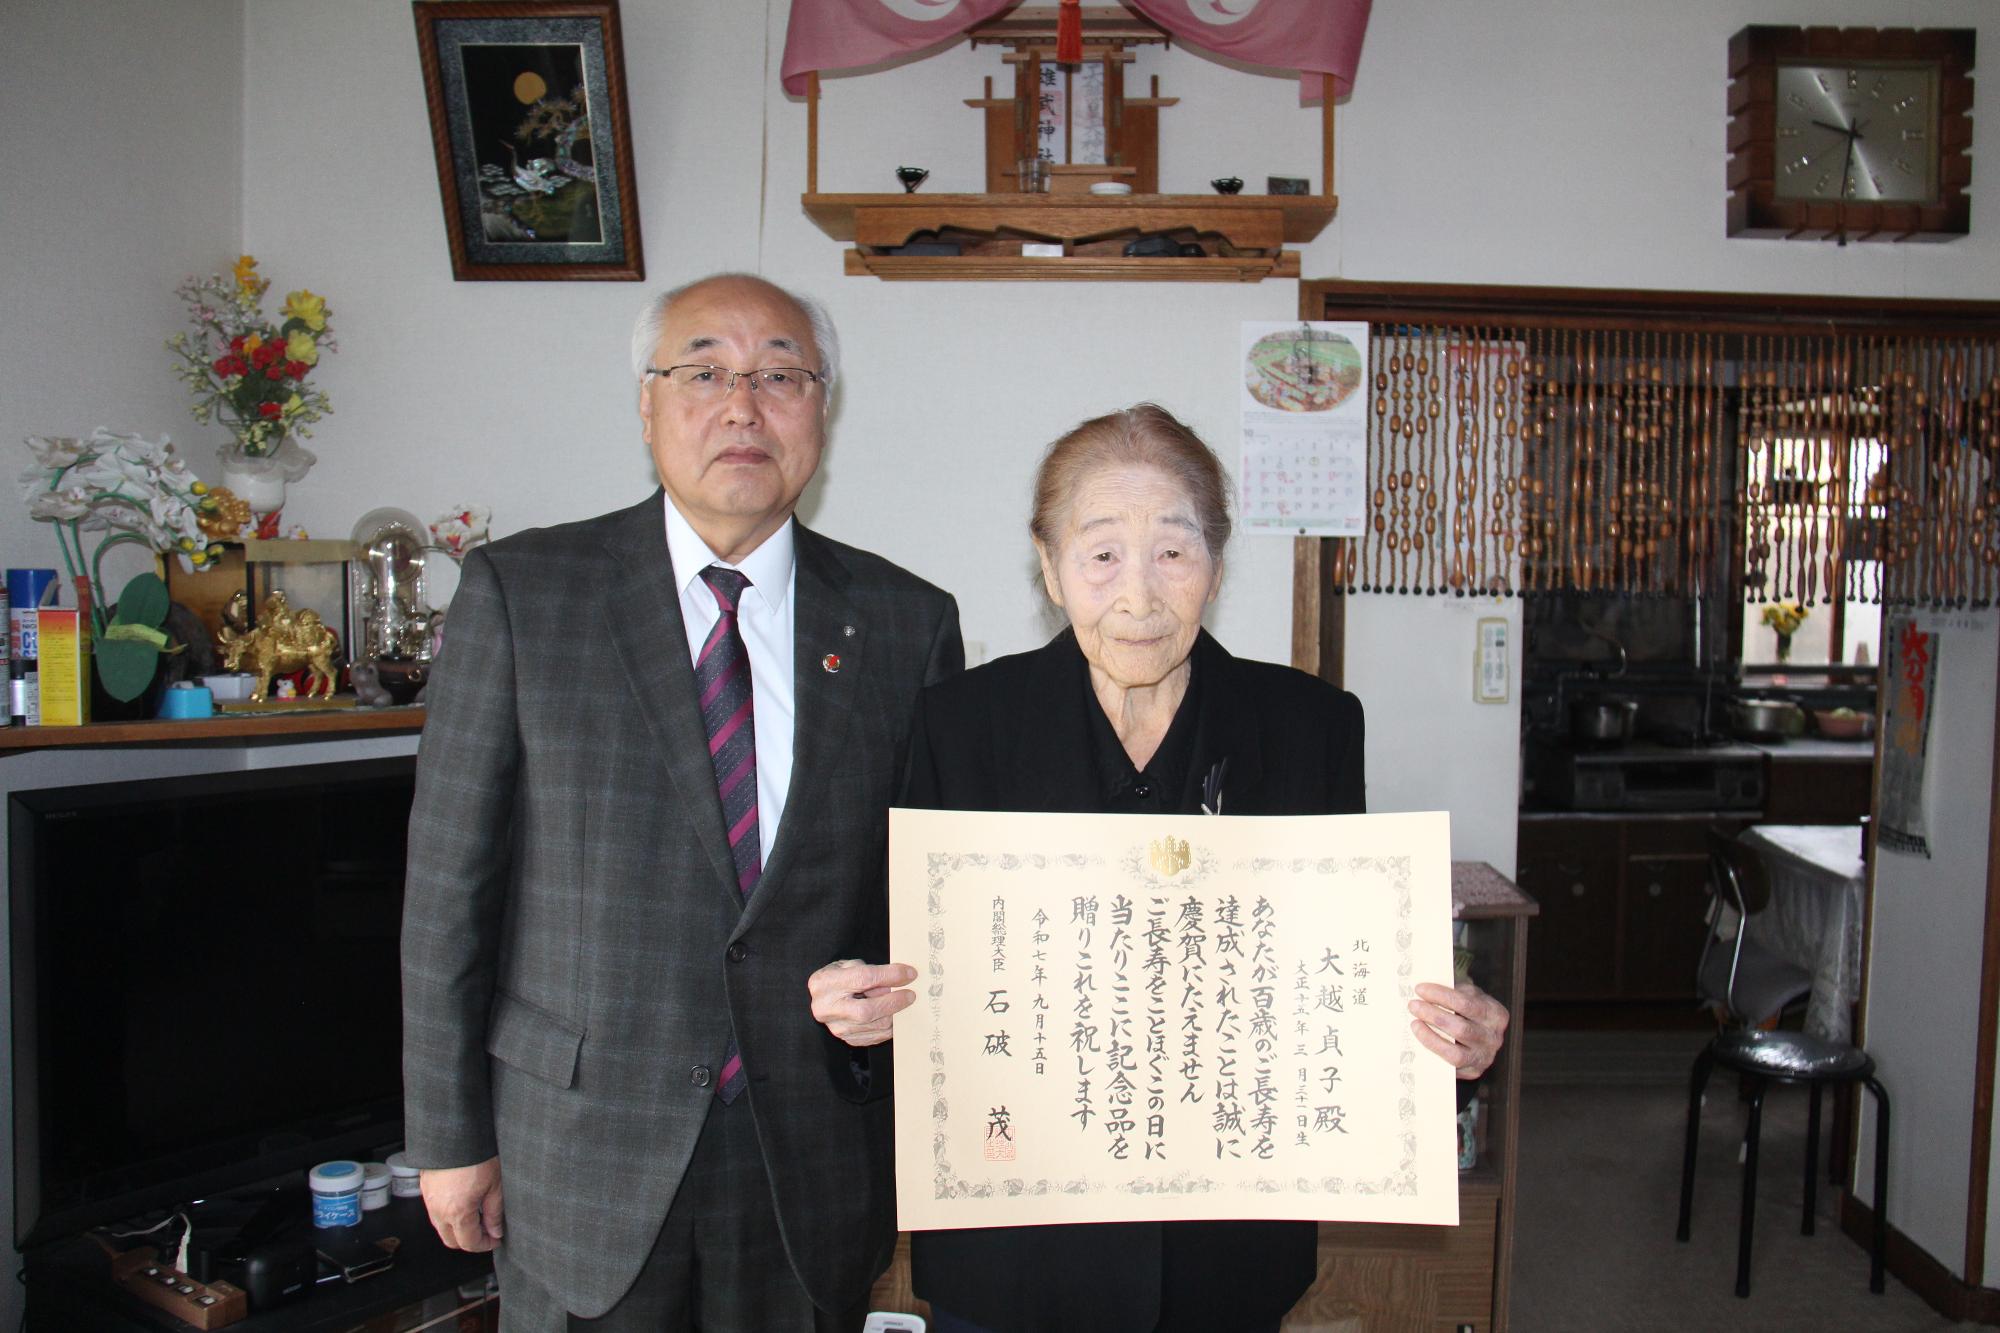 雄武神社
天照皇大神宮
北海道
大越貞子殿
大正十五年三月三十一日生
あなたが百歳のご長寿を
達成されたことは誠に
慶賀にたえません
ご長寿をことほぐこの日に
当たりここに記念品を
贈りこれを祝します
令和七年九月十五日
内閣総理大臣
石破茂
ドライケース
10